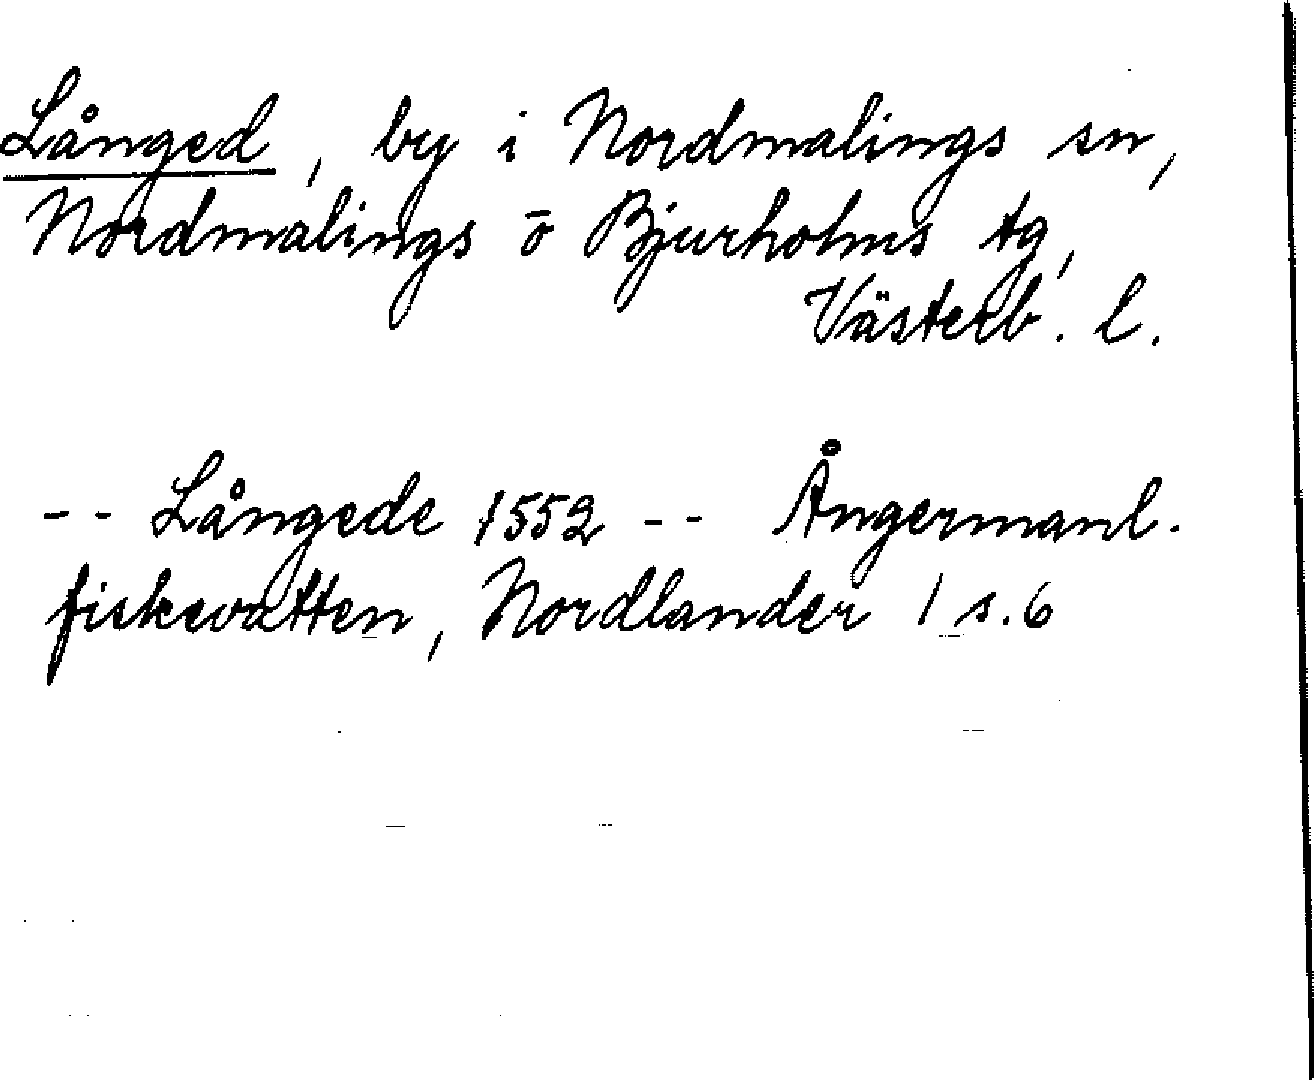 Långed, by i Nordmalings sn,
Nordmalings o Bjurholms tg,
Västerb. l.
-- Långede 1552 -- Ångermanl.
fiskevatten, Nordlander 1 s. 6